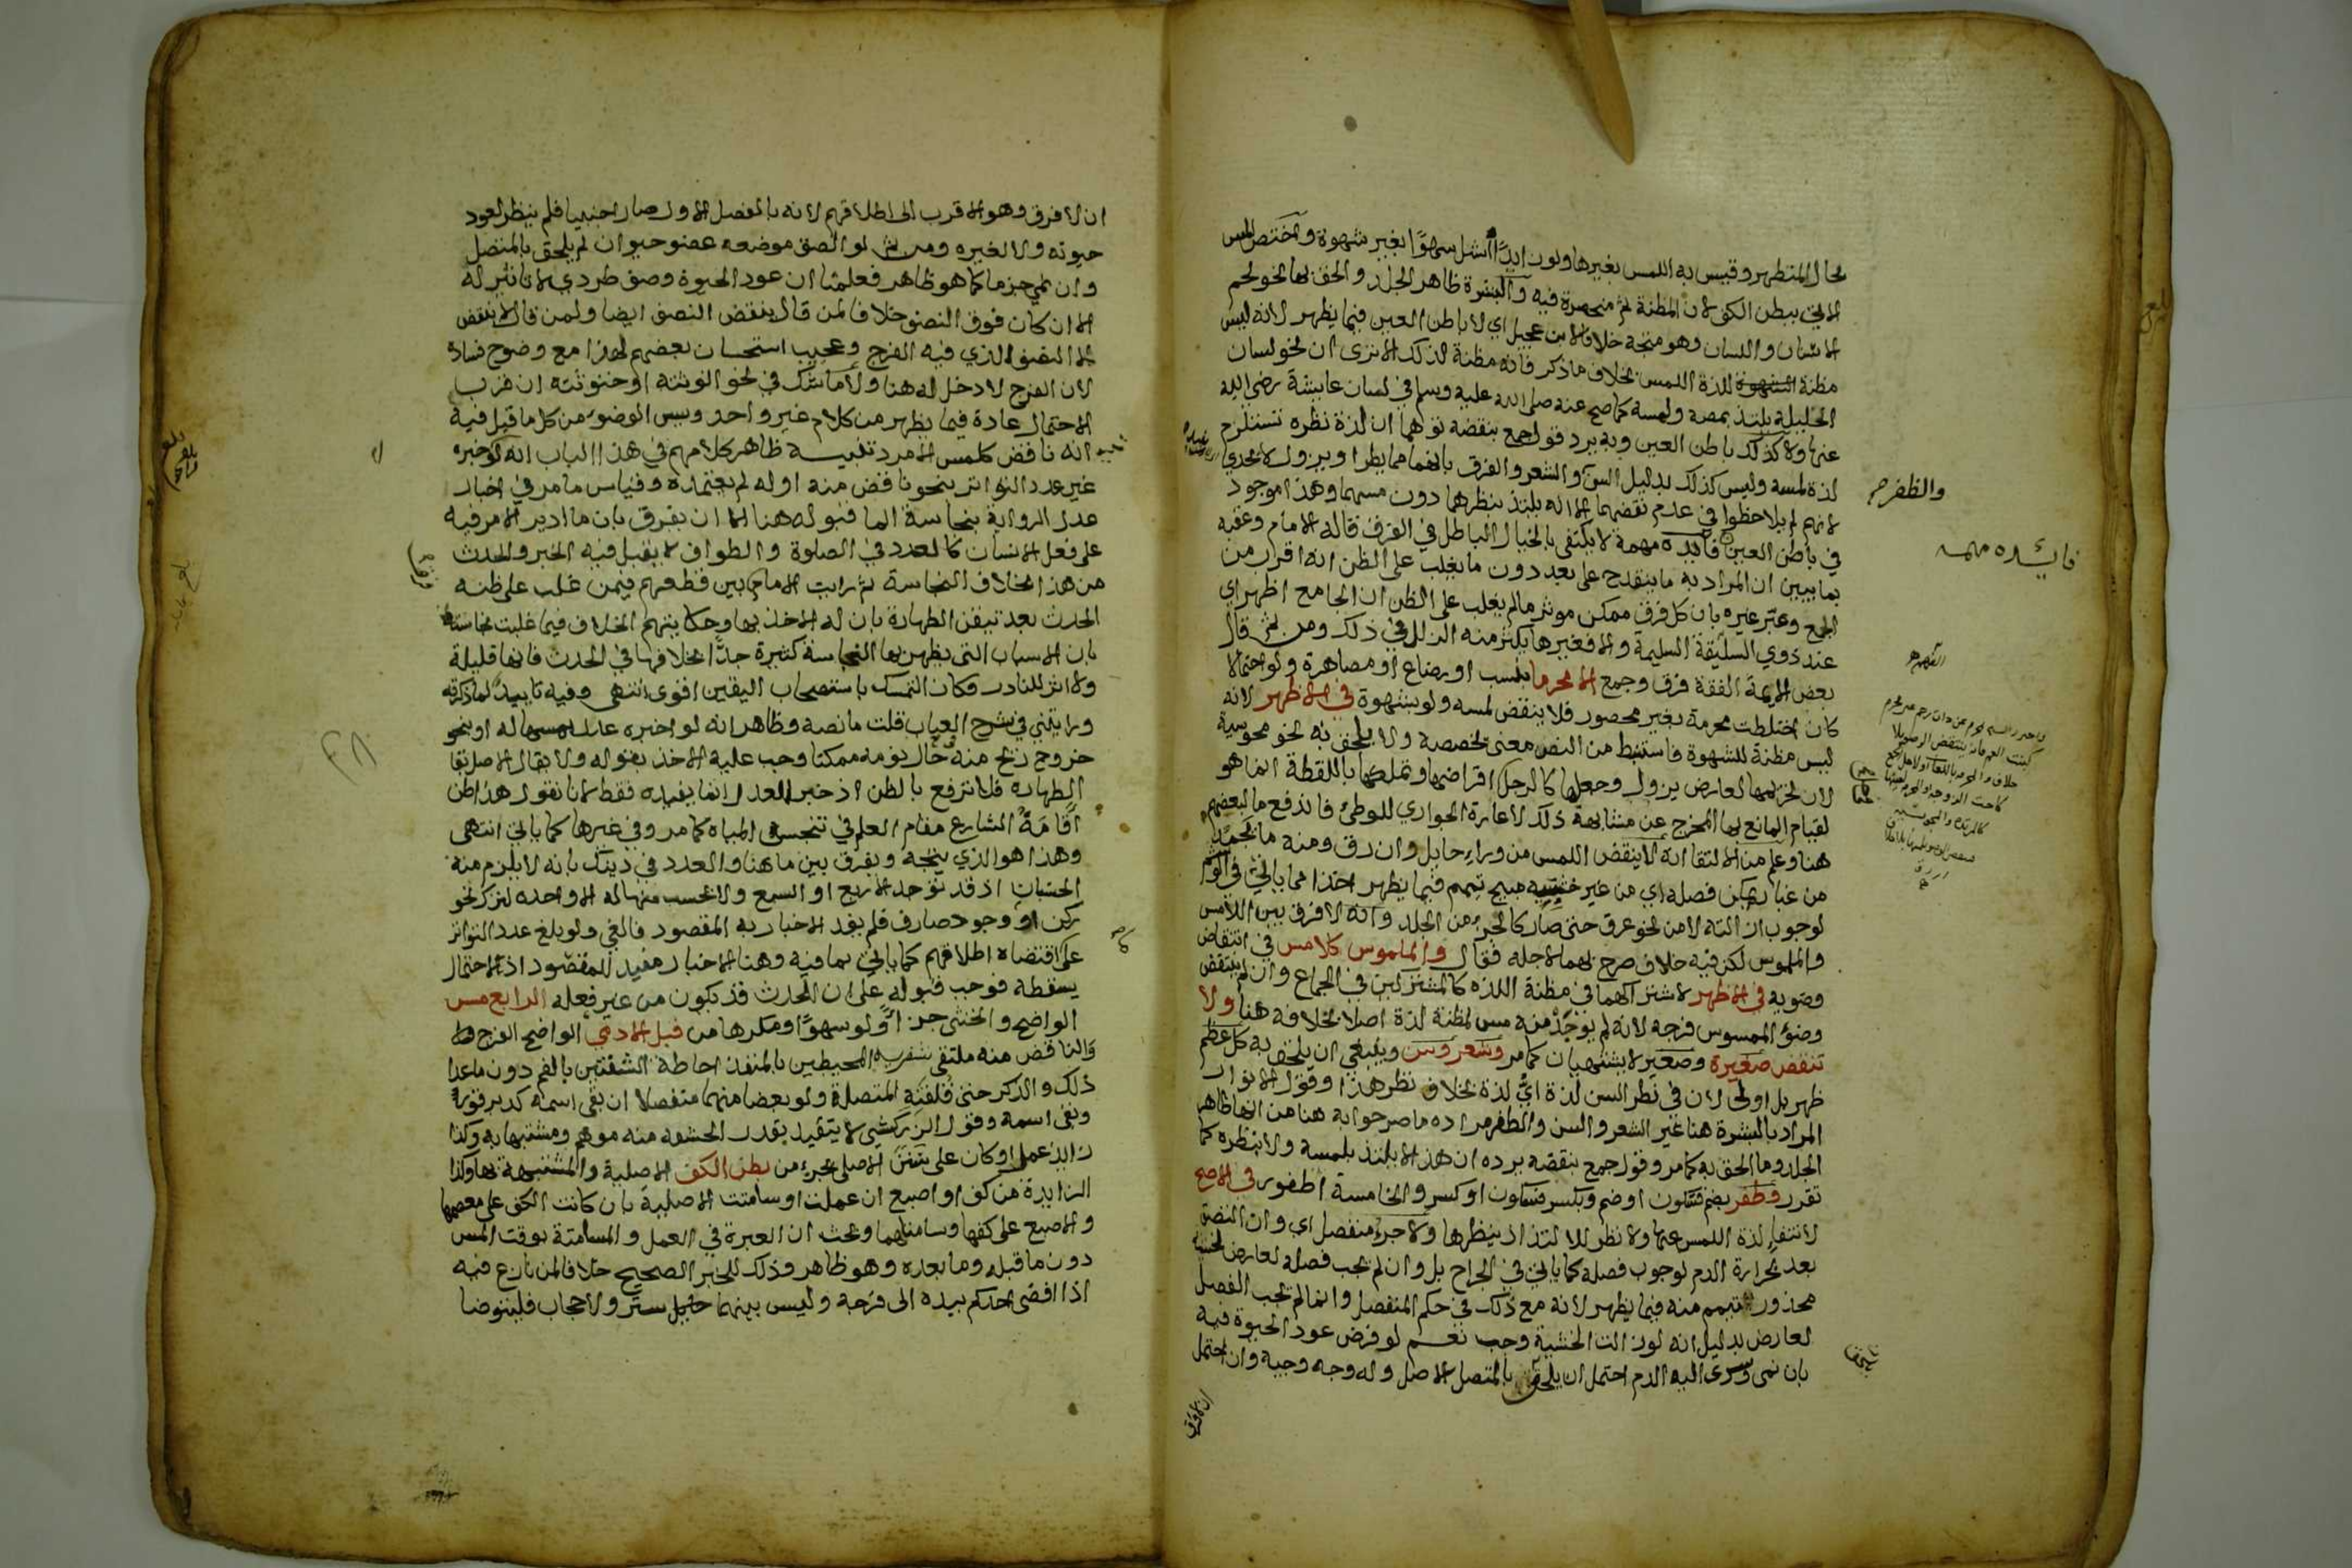 بحال المتطهر وقيس به اللمس بغيرها ولو زايدا اشل سهوا بغير شهوة واختص المس
الاتي ببطن الكف لان المظنة ثم منحصرة فيه والبشرة ظاهر الجلد والحق بها نحو لحم
الاسنان واللسان وهو متجه خلافا لابن عجيل اي لا باطن العين فيما يظهر لانه ليس
مظنة للذة اللمس بخلاف ما ذكر فانه مظنة لذلك الا ترى ان نحو لسان
الحليلة يلتذ بمصه ولمسه كما صح عنه صلى الله عليه وسلم في لسان عايشة رضي الله
عنها ولا كذلك باطن العين وبه يرد قول جمع بنقضه توهما ان لذة نظره تستلزم
لذة لمسه وليس كذلك بدليل السن والشعر والفرق بانهما مما يطرا ويزول لا يجدي
لانهم لم يلاحظوا في عدم نقضهما الا انه يلتذ بنظرهما دون مسهما وهذا موجود
في باطن العين فايدة مهمة لا يكتفى بالخيال الباطل في الفرق قاله الامام وعقبه
بما يبين ان المراد به ما ينقدح على بعد دون ما يغلب على الظن انه اقرب من
الجمع وعبر غيره بان كل فرق ممكن موثر ما لم يغلب على الظن ان الجامع اظهر اي
عند ذوي السليقة السليمة والا فغيرها يكثر منه الزلل في ذلك ومن ثم قال
بعض الايمة الفقه فرق وجمع الا محرما بنسب او رضاع او مصاهرة ولو احتمالا
كان اختلطت محرمة بغير محصور فلا ينقض لمسه ولو بشهوة في الاظهر لانه
ليس مظنة للشهوة فاستنبط من النص معنى خصصه ولا يلحق به نحو مجوسية
لان تحريمها لعارض يزول وجعلها كالرجل في اقراضها وتملكها باللقطة انما هو
لقيام المانع بها المخرج عن مشابهة ذلك لاعارة الجواري للوطئ فاندفع ما لبعضهم
هنا وعلم من الالتقا انه لا ينقض اللمس من وراء حايل وان رق ومنه ما تجمد
من غبار يمكن فصله اي من غير خشية مبيح تيمم فيما يظهر اخذا مما ياتي في الوشم
لوجوب ازالته لا من نحو عرق حتى صار كالجزء من الجلد وانه لا فرق بين اللامس
والملموس لكن فيه خلاف صرح بهما لاجله فقال والملموس كلامس في انتقاض
وضويه في الاظهر لاشتراكهما في مظنة اللذه كالمشتركين في الجماع وان لم ينتقض
وضؤ الممسوس فرجه لانه لم يوجد منه مس لمظنة لذة اصلا بخلافه هنا ولا
تنقض صغيرة وصغير لا يشتهيان كما مر وشعر وسن وينبغي ان يلحق به كل عظم
ظهر بل اولى لان في نظر السن لذة اي لذة بخلاف نظر هذا وقول الانوار
المراد بالبشرة هنا غير الشعر والسن والظفر مراده ما صرحوا به هنا من انها ظاهر
الجلد وما الحق به كما مر وقول جمع بنقضه يرده ان هذا لا يلتذ بلمسه ولا بنظره كما
تقرر وظفر بضم فسكون او ضم وبكسر فسكون او كسر والخامسة اظفور في الاصح
لانتفاء لذة اللمس عنها ولا نظر للالتذاذ بنظرها ولا جزء منفصل اي وان التصق
بعد بحرارة الدم لوجوب فصله كما ياتي في الجراح بل وان لم يجب فصله لعارض لخشية
محذور تيمم منه فيما يظهر لانه مع ذلك في حكم المنفصل وانما لم يجب الفصل
لعارض بدليل انه لو زالت الخشية وجب نعم لو فرض عود الحيوة فيه
بان نمى وسرى اليه الدم احتمل ان يلحق بالمتصل الاصل وله وجه وجيه وان احتمل
والظفر
فايده مهمه
ان لا فرق
ان لا فرق وهو الاقرب الى اطلاقهم لانه بالفصل الاول صار اجنبيا فلم ينظر لعود
حيوته ولا لغيره ومن ثم لو الصق موضعه عضو حيوان لم يلحق بالمتصل
وان نمى جزما كما هو ظاهر فعلمنا ان عود الحيوة وصف طردي لا تاثير له
الا ان كان فوق النصف خلافا لمن قال ينقض النصف ايضا ولمن قال لا ينقض
الا النصف الذي فيه الفرج وعجيب استحسان بعضهم لهذا مع وضوح فساده
لان الفرج لا دخل له هنا ولا ما شك في نحو انوثته او خنوثته ان قرب
الاحتمال عادة فيما يظهر من كلام غير واحد ويسن الوضوء من كل ما قيل فيه
انه ناقض كلمس الامرد تنبيه ظاهر كلامهم في هذا الباب انه لو اخبره
غير عدد التواتر بنحو ناقض منه او له لم يعتمده وقياس ما مر في اخبار
عدل الرواية بنجاسة الما قبوله هنا الا ان يفرق بان ما ادير الامر فيه
على فعل الانسان كالعدد في الصلوة والطواف لا يقبل فيه الخبر والحدث
من هذا بخلاف النجاسة ثم رايت الامام بين قطعهم فيمن غلب على ظنه
الحدث بعد تيقن الطهارة بان له الاخذ بها وحكايتهم الخلاف فيما غلبت نجاسته
بان الاسباب التي يظهر بها النجاسة كثيرة جدا بخلافها في الحدث فانها قليلة
ولا اثر للنادر فكان التمسك باستصحاب اليقين اقوى انتهى وفيه تاييد لما ذكرته
ورايتني في شرح العباب قلت ما نصه وظاهر انه لو اخبره عدل بمسها له او بنحو
خروج ريح منه حال نومه ممكنا وجب عليه الاخذ بقوله ولا يقال الاصل بقا
الطهارة فلا ترفع بالظن اذ خبر العدل انما يفيده فقط لانا نقول هذا ظن
اقامه الشارع مقام العلم في تنجس المياه كما مر وفي غيرها كما ياتي انتهى
وهذا هو الذي يتجه ويفرق بين ما هنا والعدد في ذينك بانه لا يلزم منه
الحسبان اذ قد توجد الاربع او السبع ولا تحسب منها له الا واحده لترك نحو
ركن او وجود صارف فلم يفد الاخبار به المقصود فالغي ولو بلغ عدد التواتر
على اقتضاه اطلاقهم كما ياتي بما فيه وهنا الاخبار مفيد للمقصود اذ لا احتمال
يسقطه فوجب قبوله على ان الحدث قد يكون من غير فعله الرابع مس
الواضح والخنثى جزأ ولو سهوا ومكرها من قبل الادمي الواضح الفرج
والناقض منه ملتقى شفريه المحيطين بالمنفذ احاطة الشفتين بالفم دون ما عدا
ذلك والذكر حتى قلفته المتصلة ولو بعضا منهما منفصلا ان بقي اسمه كدبر قور
وبقي اسمه وقول الزركشي لا يتقيد بقدر الحشفه منه موهم ومشتبها به وكذا
زايد عمل او كان على سنن الاصلي بجزء من بطن الكف الاصلية والمشتبهة بها وكذا
الزايدة من كف او اصبع ان عملت او سامتت الاصلية بان كانت الكف على معصمها
والاصبع على كفها وسامتاهما وبحث ان العبرة في العمل والمسامتة بوقت المس
دون ما قبله وما بعده وهو ظاهر وذلك للخبر الصحيح خلافا لمن نازع فيه
اذا افضى احدكم بيده الى فرجه وليس بينهما ستر ولا حجاب فليتوضا
بلغ
٢٨